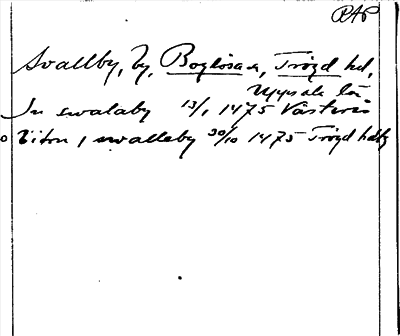 RAP
Svallby, by, Boglösa sn, Trögd hd,
Uppsala län
In swalaby 13/1 1475 Västerås
o Biton i swalleby 30/10 1475 Trögd hdby